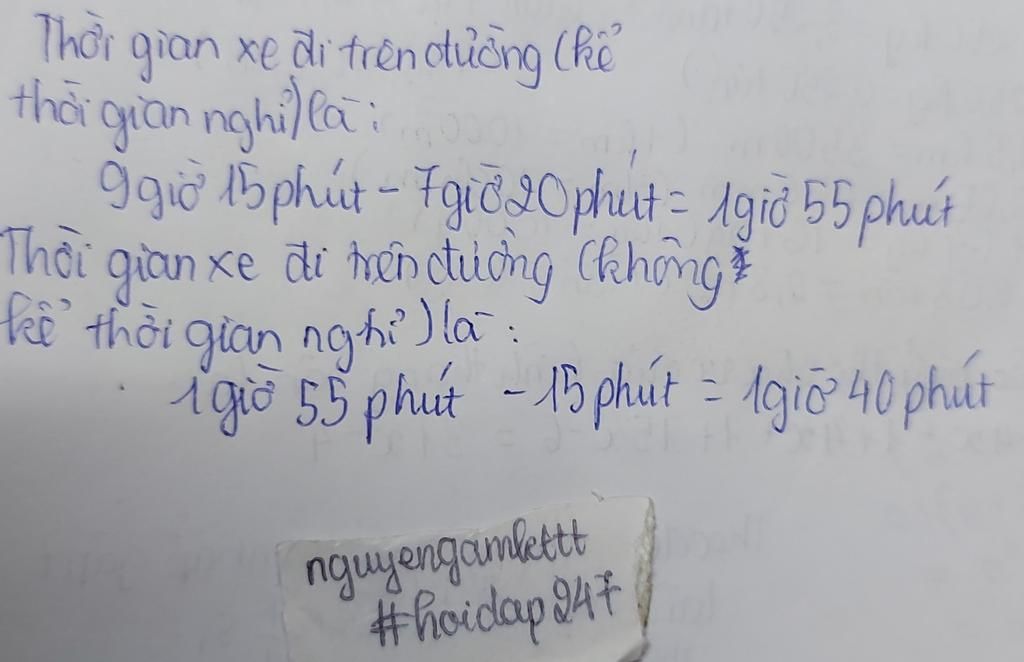 Thời gian xe đi trên đường (kể
thời gian nghỉ) là:
9giờ 15 phút - 7giờ 20 phút = 1giờ 55 phút
Thời gian xe đi trên đường (không
kể thời gian nghỉ) là:
1giờ 55 phút - 15 phút = 1giờ 40 phút
nguyengamkttt
#hoidap247